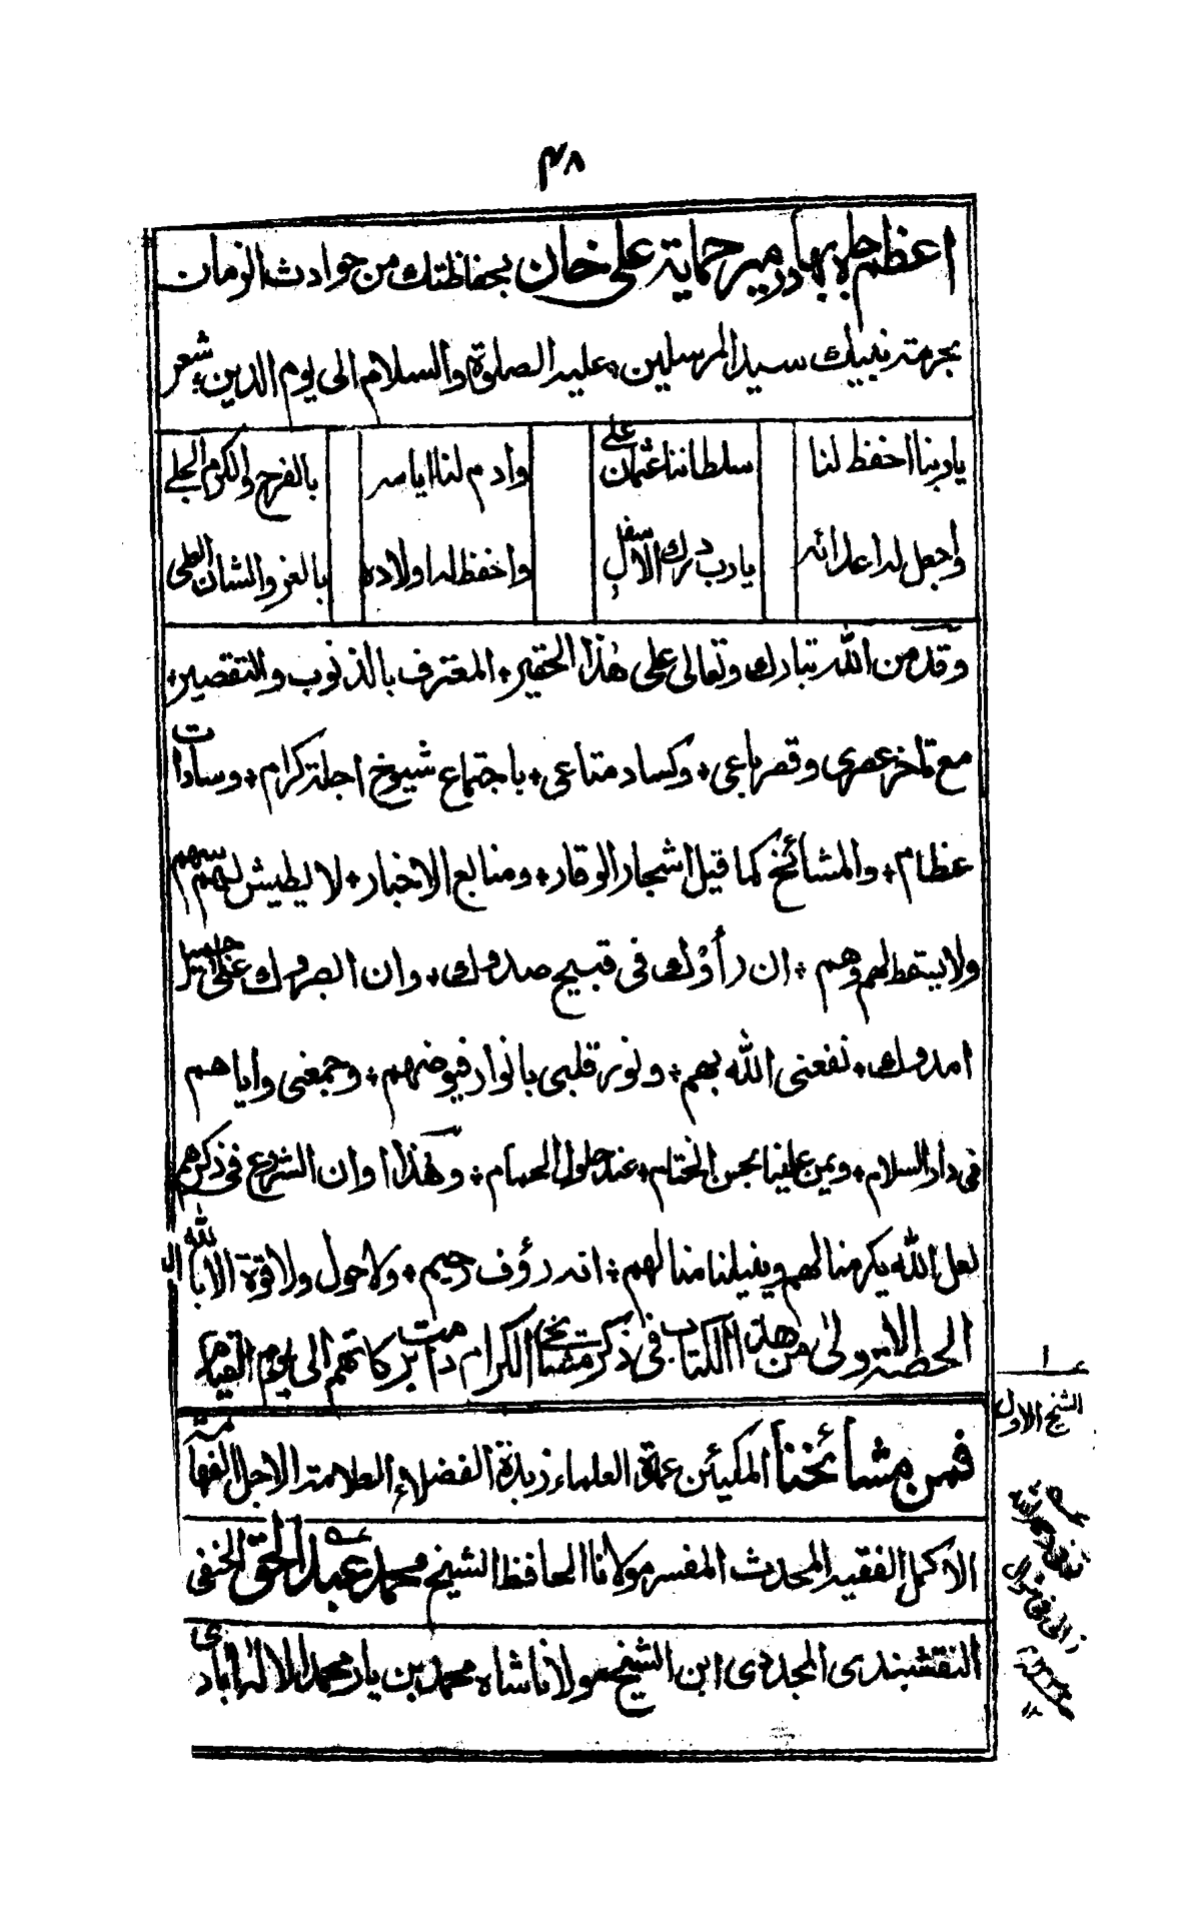 ٤٨
اعظم جاه بهادر مير حماية على خان بحفاظتك من حوادث الزمان
بحرمة نبيك سيد المرسلين، عليه الصلوة والسلام الى يوم الدين، شعر
ياربنا احفظ لنا سلطاننا عثمان على وادم لنا اياسه بالفرح والكرم الجلى
واجعل له اعدائه يارب درك الاسفل واحفظ له اولاده بالعز والشان العلى
وقد من الله تبارك وتعالى على هذا الحقير، المعترف بالذنوب والتقصير،
مع تاخر عصرى وقصر باعى، وكساد متاعى، باجتماع شيوخ اجلة كرام، وسادات
عظام، والمشائخ كما قيل اشجار الوقار، ومنابع الاخبار، لا يطيش لهم سهم
ولا يسقط لهم وهم، ان رأوك فى قبيح صدوك، وان ابصروك على جميل
امدوك، نفعنى الله بهم، ونور قلبى بانوار فيوضهم، وجمعنى واياهم
فى دار السلام، ويمن علينا بحسن الختام، عند حلول الحمام، وهذا اوان الشروع فى ذكرهم
لعل الله يكرمنا لهم وينيلنا منالهم، انه رؤف رحيم، ولا حول ولا قوة الا بالله ال
الحصة الاولى من هذا الكتاب فى ذكر مشائخنا الكرام دامت بركاتهم الى يوم القيام
الشيخ الاول
فمن مشائخنا المكيين عمدة العلماء زبدة الفضلاء العلامة الاجل الفهامة
الاكمل الفقيه المحدث المفسر مولانا الحافظ الشيخ محمد عبد الحق الحنفى
النقشبندى المجددى ابن الشيخ مولانا شاه محمد بن يار محمد الاله ابادى